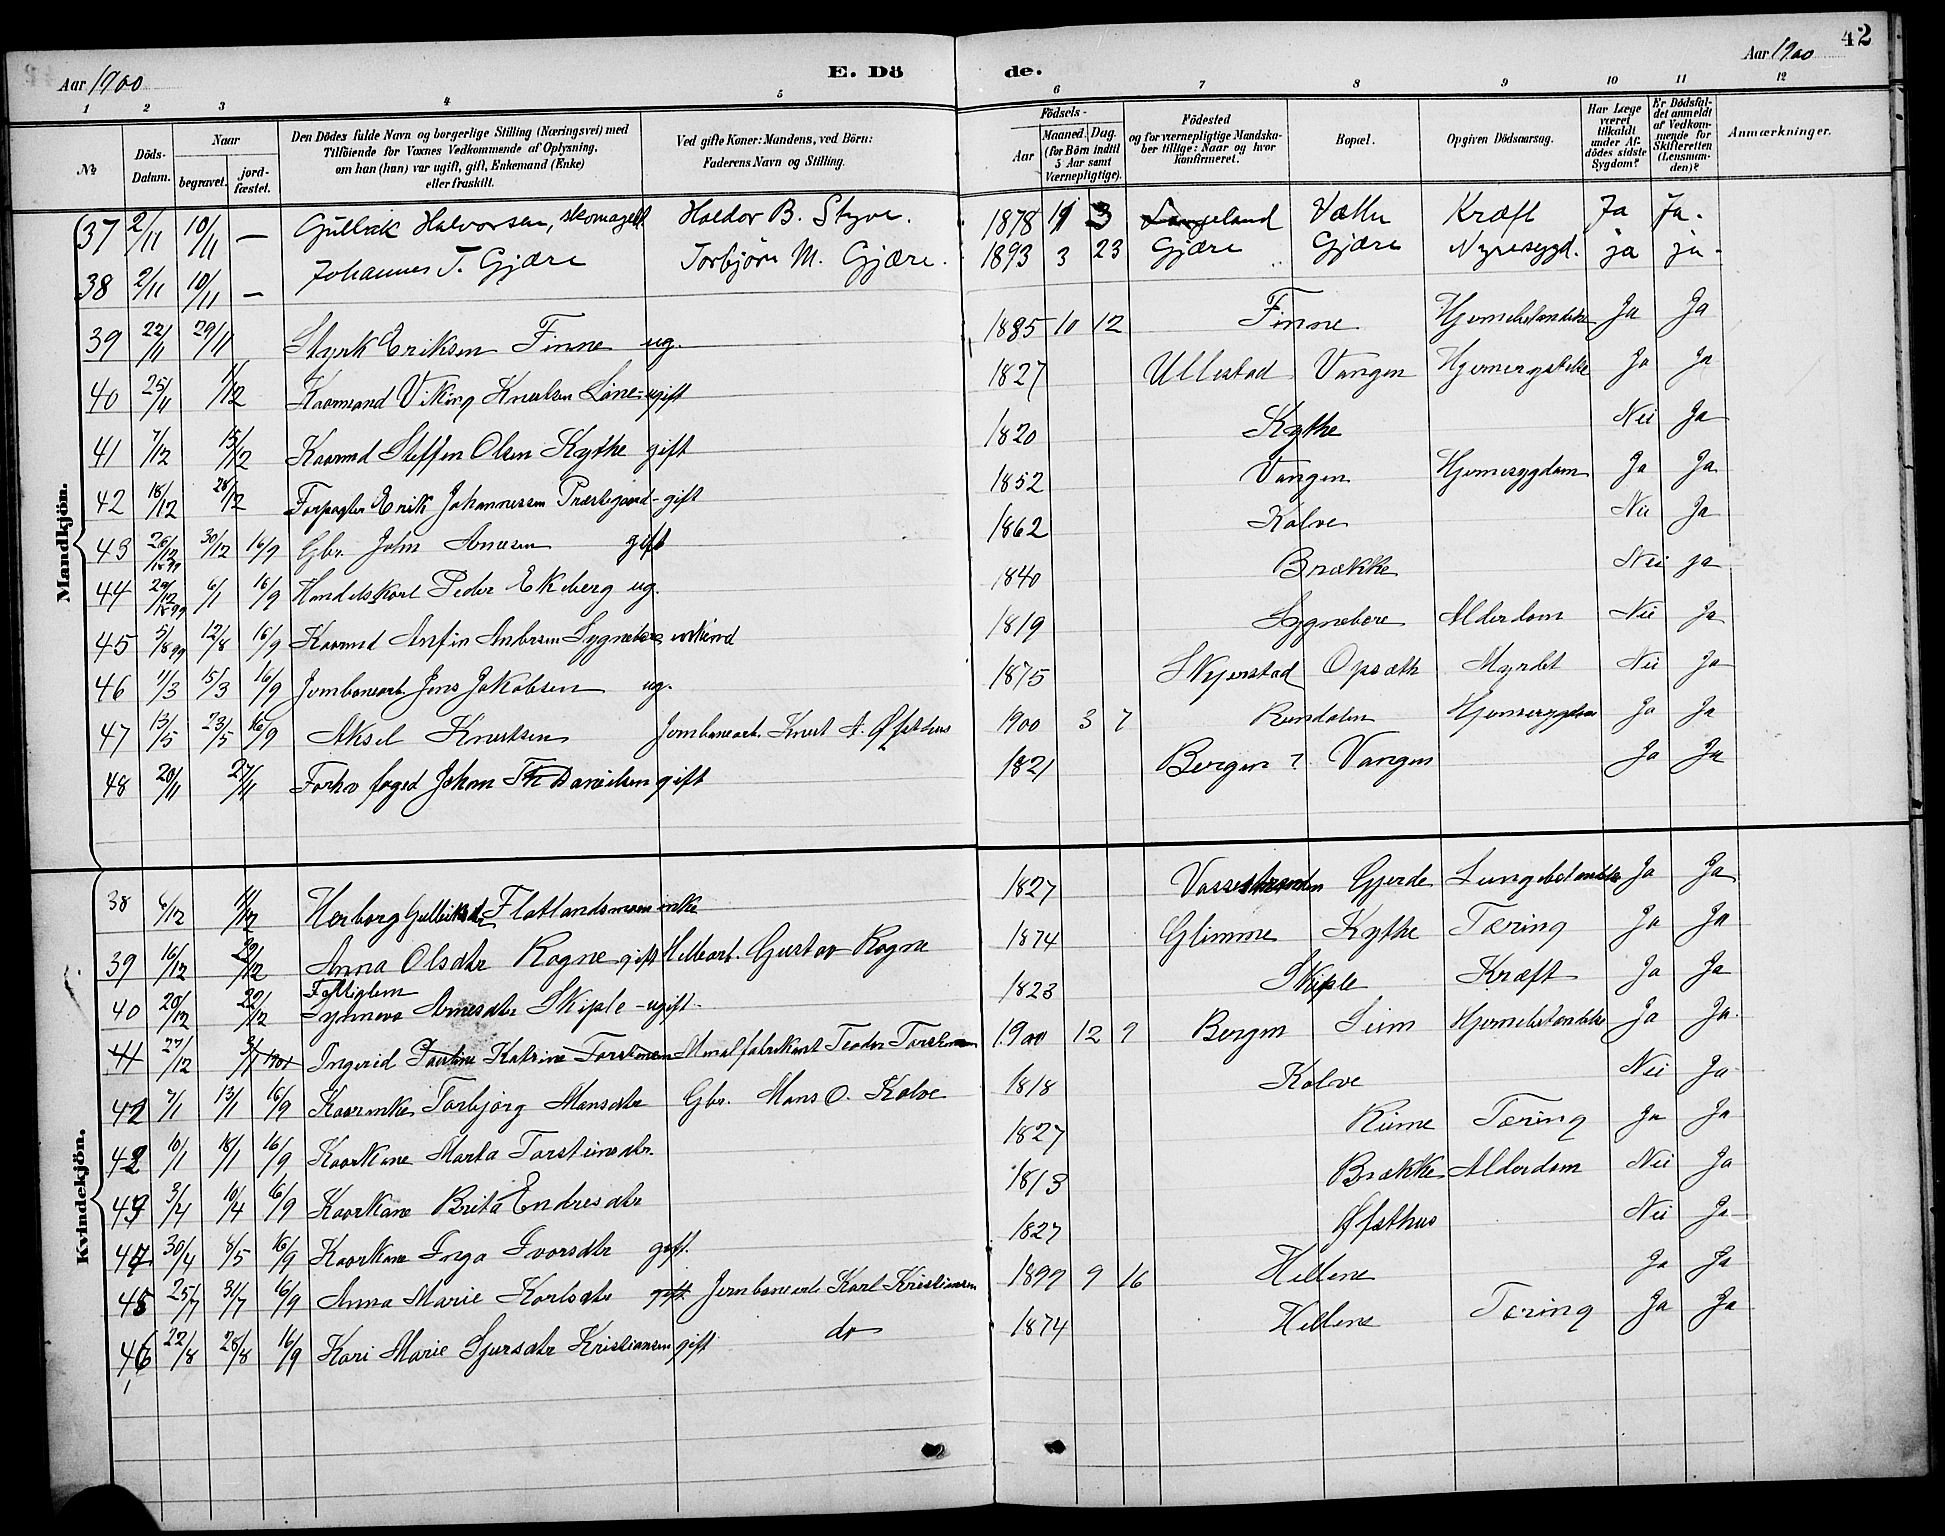 42
Aar 1900
E. Dö
de.
Aar 1900
1 2 3 4 5 6 7 8 9 10 11 12
№
Döds-Datum.
Naar
begravet.
jord-fæstet.
Den Dödes fulde Navn og borgerlige Stilling (Næringsvei) med
Tilföiende for Voxnes Vedkommende af Oplysning,
om han (hun) var ugift, gift, Enkemand (Enke)
eller fraskilt.
Ved gifte Koner: Mandens, ved Börn:
Faderens Navn og Stilling.
Födsels-
Aar
Maaned. Dag.
(for Börn indtil
5 Aar samt
Værnepligtige).
Födested
og for værnepligtige Mandska-
ber tillige: Naar og hvor
konfirmeret.
Bopæl.
Opgiven Dödsaarsag.
Har Læge
været
tilkaldt
under Af-
dödes sidste
Sygdom?
Er Dödsfal-
det anmeldt
af Vedkom-
mende for
Skifteretten
(Lensman-
den)?
Anmærkninger.
Mandkjön.
37 2/11 10/11 — Gullick Halvorsen, skomager Haldor B. Styve. 1878 11 3 Langeland Kræft Ja Ja.
38 2/11 10/11 — Johannes T. Gjære Torbjörn M. Gjære. 1893 3 23 Gjære Gjære Nyresygd. ja ja.
39 22/11 29/11 Styrk Eriksen Finne ug. 1885 10 12 Finne Ja Ja
40 25/11 1/12 Kaarmand Viking Knutsen ugift 1827 Ullestad Vangen Ja Ja
41 7/12 15/12 Kaarmd Steffen Olsen Kythe gift 1820 Kythe Nei Ja
42 18/12 28/12 Forpagter Erik Johannessen Præstegaard - gift 1852 Vangen Hjernesygdom Ja Ja
43 26/12 1899 30/12 16/9 Gbr. John gift 1862 Kolve Nei Ja
44 29/12 1899 6/1 16/9 Handelskarl Peder Ekeberg ug. 1840 Brække Nei ja
45 5/8 99 12/8 16/9 Kaarmd Anfin Andersen 1819 Alderdom Nei Ja
46 11/3 15/3 16/9 Jernbanearb. Jens Jakobsen ug. 1875 Opsæth Myrdet Nei Ja
47 13/5 23/5 16/9 Aksel Knutsen Jernbanearb. Knut A. Øfsthus 1900 3 7 Rundalen Ja Ja
48 20/11 27/11 Forhv foged Johan Th Danielsen gift 1821 Bergen ? Vangen Ja Ja
Kvindekjön.
38 6/12 11/12 Herborg Gulleiksdr Flatlandsmoen enke 1827 Vossestranden Gjerde Lungebetændelse Ja Ja
39 16/12 22/12 Anna Olsdtr Rogne gift Gustav Rogne 1874 Glimme Kythe Tæring Ja Ja
40 20/12 22/12 Fattiglem Synneva Arnesdtr Skiple - ugift. 1823 Skiple Kræft Ja Ja
41 27/12 3/1 1901 Ingerid Katrine Torstensen 1900 12 9 Bergen Ja Ja
42 7/1 13/1 16/9 Kaarenke Torbjörg Monsdtr Gbr. Mons O. Kolve 1818 Kolve Nei Ja
42 10/1 18/1 16/9 Kaarkone Marta Torsteinsdtr. 1827 Tæring Ja Ja
43 3/4 10/4 16/9 Kaarkone Brita Endresdtr 1813 Brække Alderdom Nei Ja
44 30/4 8/5 16/9 Kaarkone Inga Ivarsdtr gift. 1827 Øfsthus Nei Ja
45 25/7 31/7 16/9 Anna Marie Karlsdtr gift. Jernbanearb Karl Kristiansen 1899 9 16 Hellene Ja Ja
46 22/8 28/8 16/9 Kari Marie Sjursdtr Kristiansen gift do 1874 Hellene Tæring Ja Ja